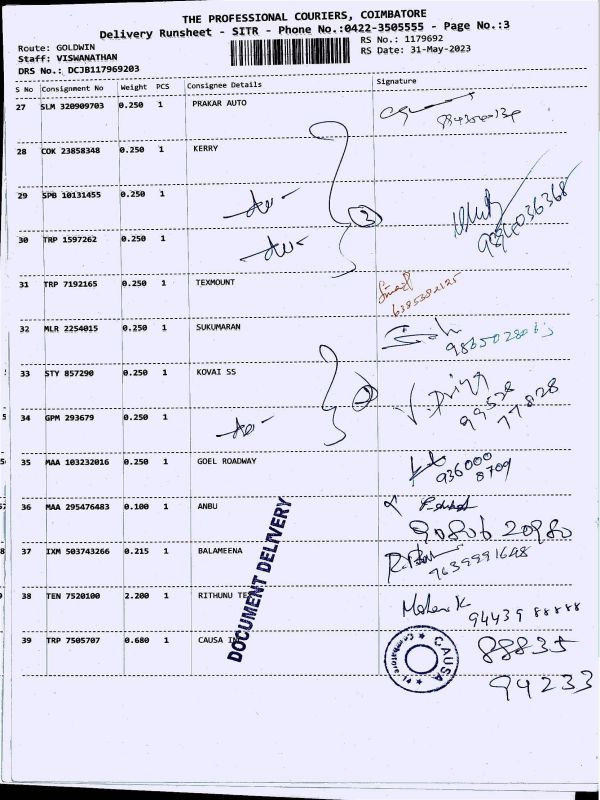 THE PROFESSIONAL COURIERS, COIMBATORE
Delivery Runsheet - SITR - Phone No.:0422-3505555 - Page No.:3
Route: GOLDWIN
Staff: VISWANATHAN
DRS No.: DCJB117969203
RS No.: 1179692
RS Date: 31-May-2023
S No Consignment No Weight PCS Consignee Details Signature
27 SLM 320909703 0.250 1 PRAKAR AUTO
28 COK 23858348 0.250 1 KERRY
29 SPB 10131455 0.250 1
3
30 TRP 1597262 0.250 1
31 TRP 7192165 0.250 1 TEXMOUNT
6385382125
32 MLR 2254015 0.250 1 SUKUMARAN
33 STY 857290 0.250 1 KOVAI SS
Priya
99528
77828
34 GPM 293679 0.250 1
35 MAA 103232016 0.250 1 GOEL ROADWAY
936000
8709
36 MAA 295476483 0.100 1 ANBU
90806 20980
37 IXM 503743266 0.215 1 BALAMEENA
9639991648
38 TEN 7520100 2.200 1 RITHUNU
Mohan K
94439 88888
39 TRP 7505707 0.680 1 CAUSA
DOCUMENT DELIVERY
CAUSA
Coimbatore
88835
94233